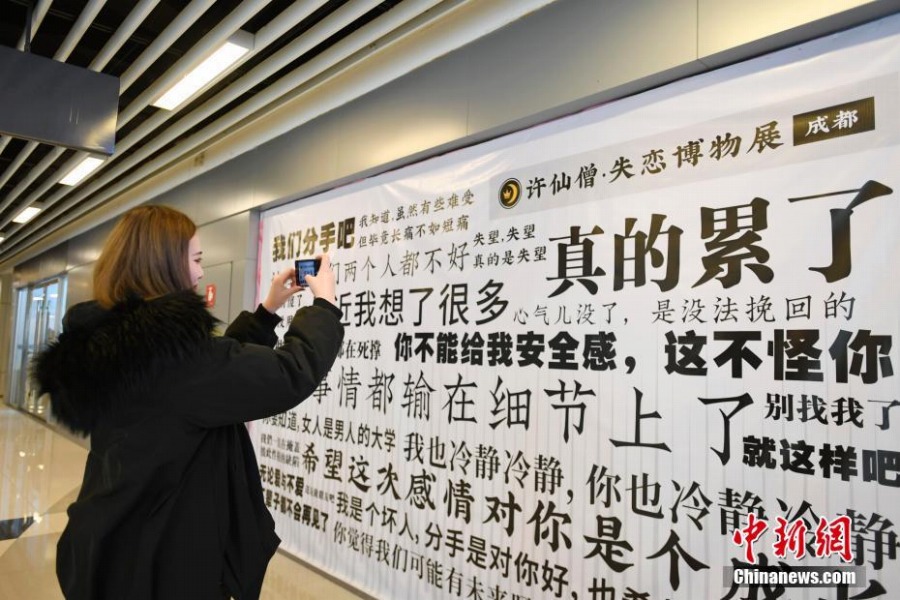 许仙僧·失恋博物展 成都
我们分手吧
我知道,虽然有些难受
但毕竟长痛不如短痛
们两个人都不好
失望,失望
真的是失望
真的累了
近我想了很多
心气儿没了,是没法挽回的
都在死撑
你不能给我安全感,这不怪你
事情都输在细节上了
别找我了
就这样吧
你要知道,女人是男人的大学
我也冷静冷静,你也冷静冷静
希望这次感情对你是个
无论爱与不爱
下辈子都不会再见了
我是个坏人,分手是对你好,
你觉得我们可能有未来
中新网
Chinanews.com